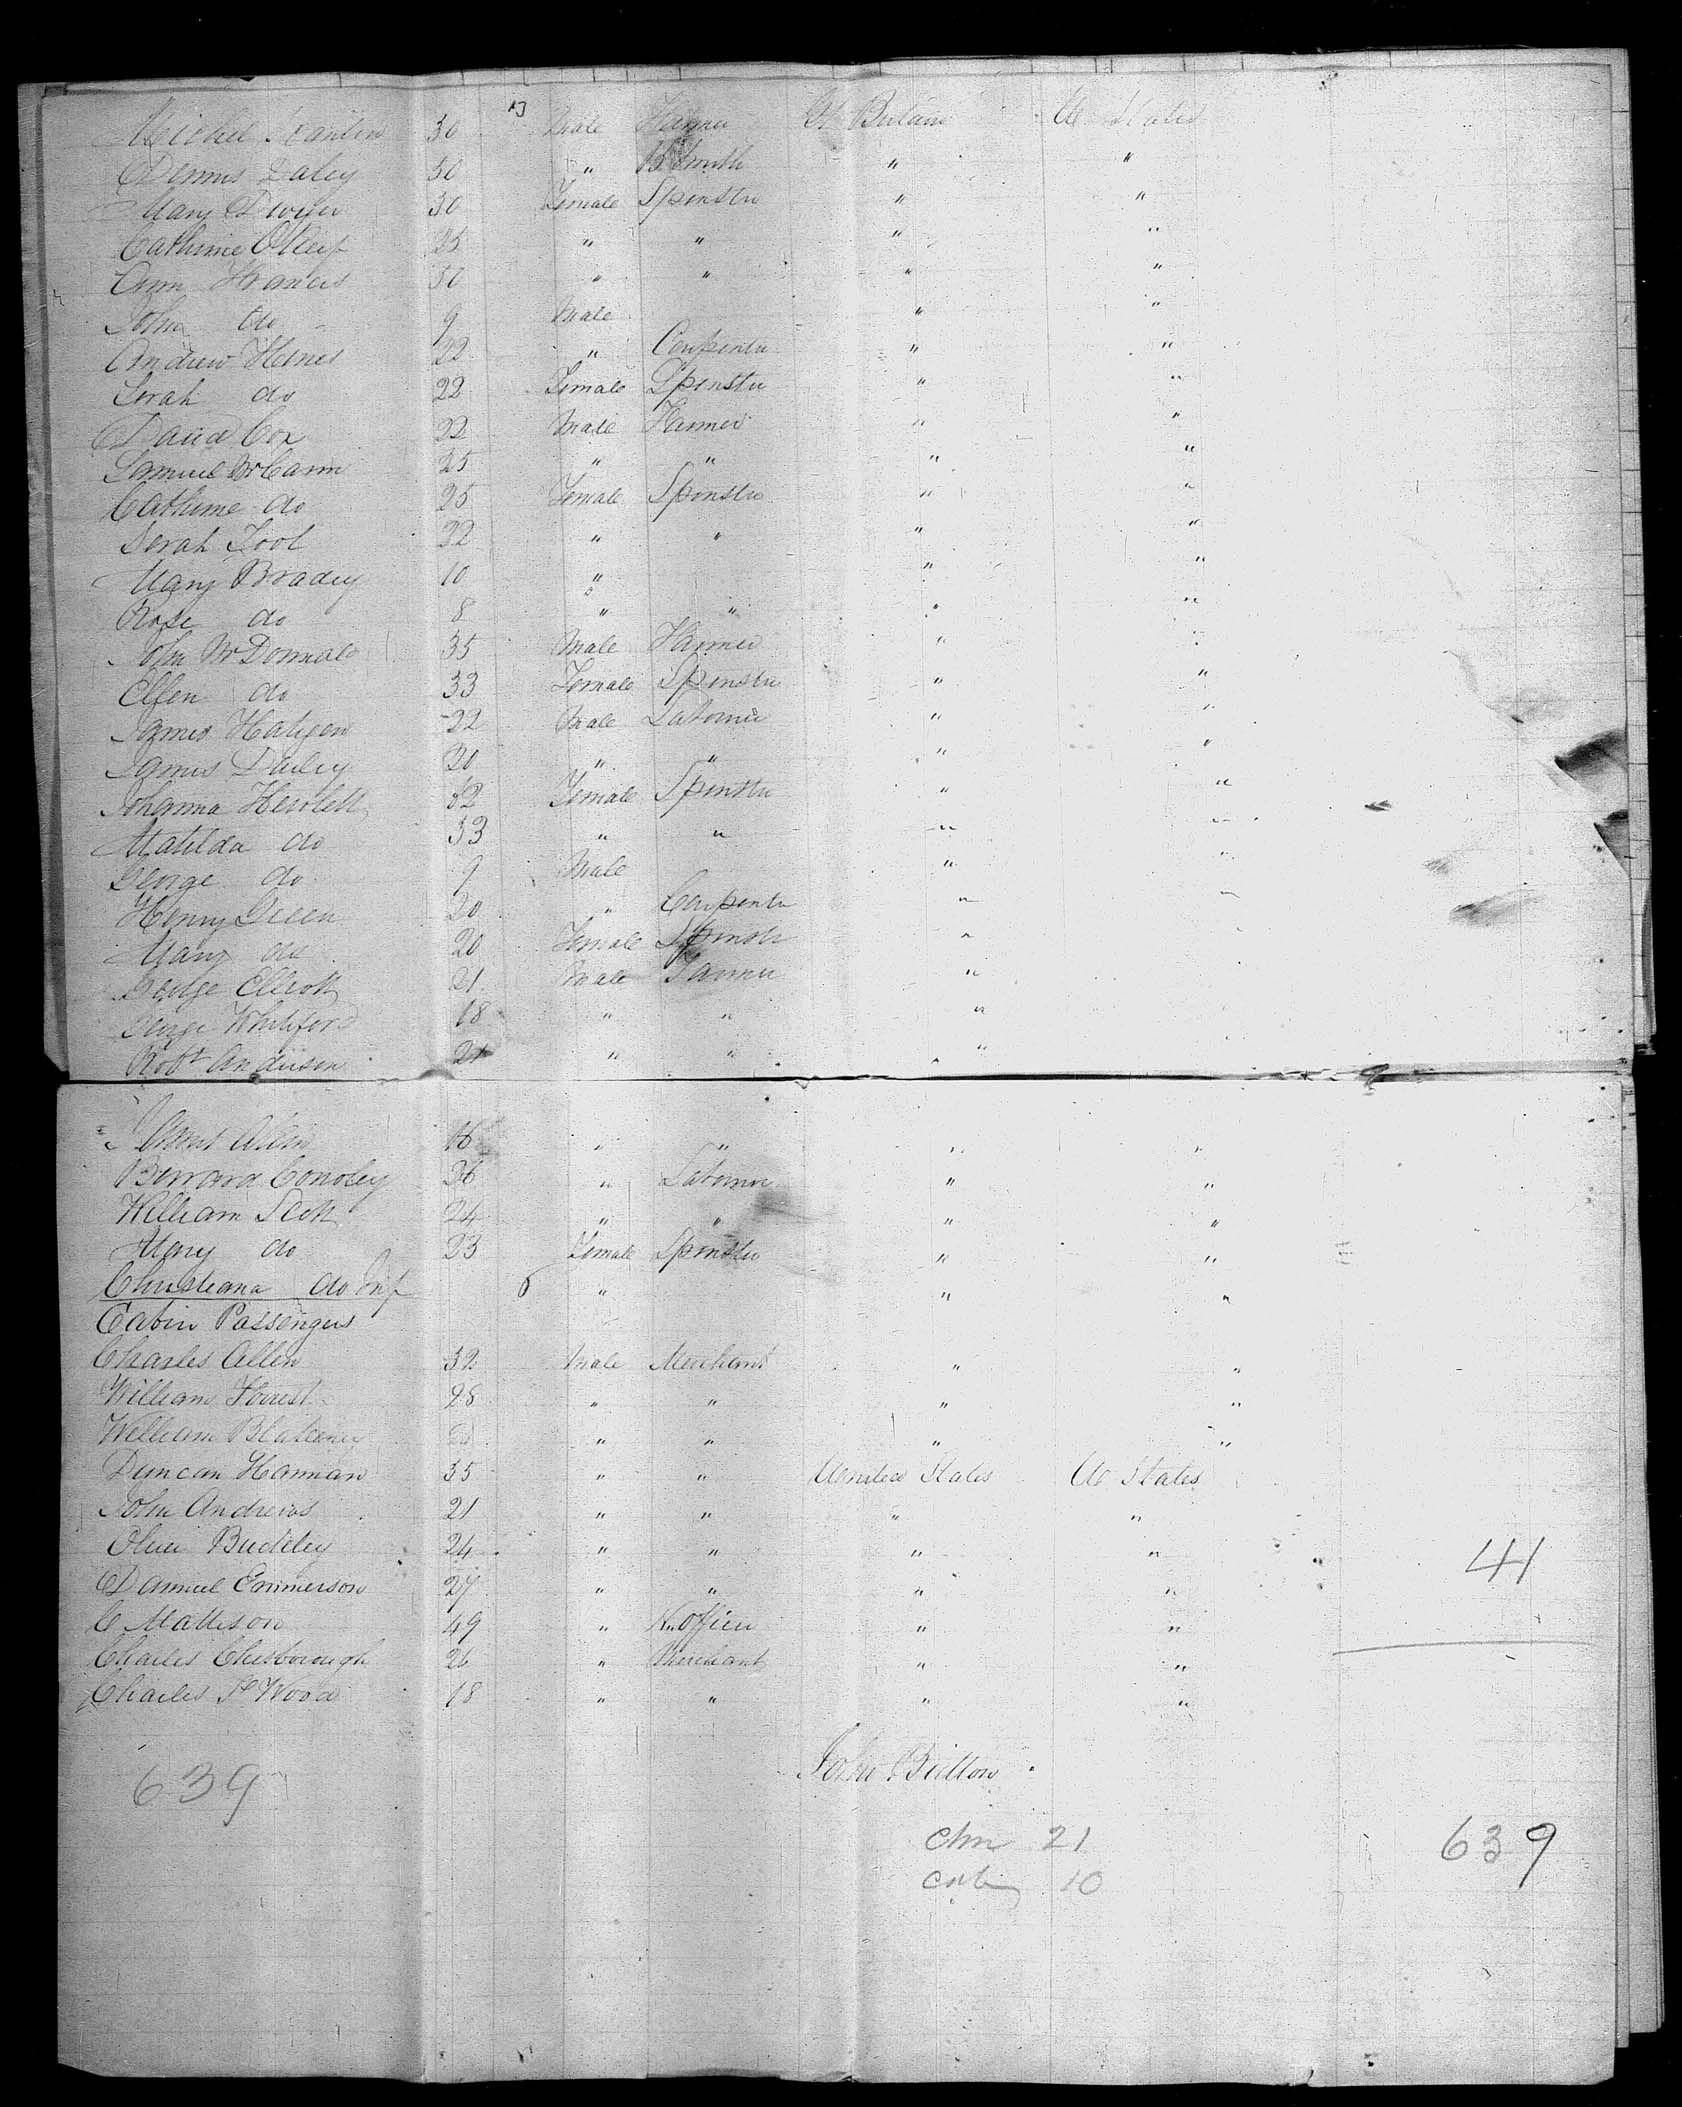 13
Michel Hanlin 30 Male Farmer Gt Britain U States
Dennis Daley 30 " B Smith " "
Mary Dwyer 30 Female Spinster " "
Catherine O'Keif 25 " " " "
Ann Francis 30 " " " "
John do 9 Male " "
Andrew Hines 22 " Carpenter " "
Sarah do 22 Female Spinster " "
David Cox 22 Male Farmer " "
Samuel McCann 25 " " " "
Catherine do 25 Female Spinster " "
Sarah Tool 22 " " " "
Mary Brady 10 " " "
Rose do 8 " " " "
John McDonnald 35 Male Farmer " "
Ellen do 33 Female Spinster " "
James Haligen 22 Male Laborer " "
James Dailey 20 " " " "
Johanna Hewlett 62 Female Spinster " "
Matilda do 33 " " " "
George do 9 Male " "
Henry Green 20 " Carpenter " "
Mary do 20 Female Spinstr " "
George Elliott 21 Male Farmer " "
George Whiteford 18 " " " "
Robt Anderson 21 " " " "
Allen 16 " " " "
Bernard Conoley 26 " Laborer " "
William Scott 24 " " " "
Mary do 23 Female Spinster " "
Christiana do Inf " " "
Cabin Passengers
Charles Allen 32 Male Merchant " "
William Forrest 28 " " " "
William Blakeney " " " "
Duncan Hannan 35 " " United States U States
John Andrews 21 " " " "
Oliver Buckley 24 " " " "
Daniuel Emmerson 27 " " " "
C Mattison 49 " N. Officer " "
Charles Chesborough 26 " Merchant " "
Charles St Wood 18 " " " "
41
John Britton
639
Chn 21
639
Cabin 10